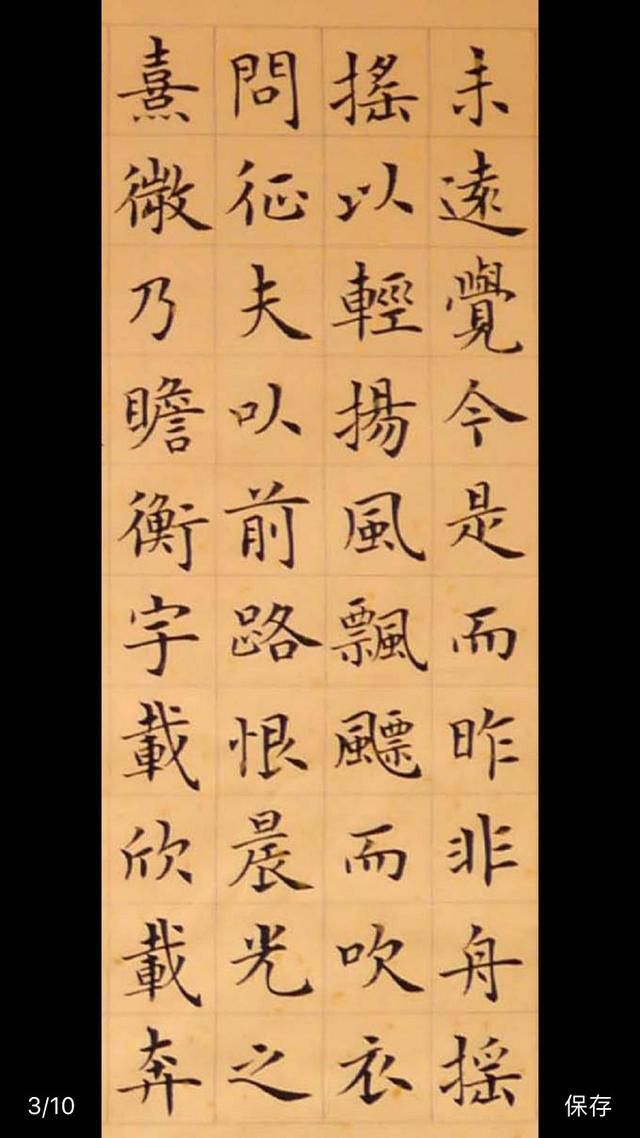 未遠覺今是而昨非舟揺
搖以輕揚風飄飃而吹衣
問征夫以前路恨晨光之
熹微乃瞻衡宇載欣載奔
3/10
保存